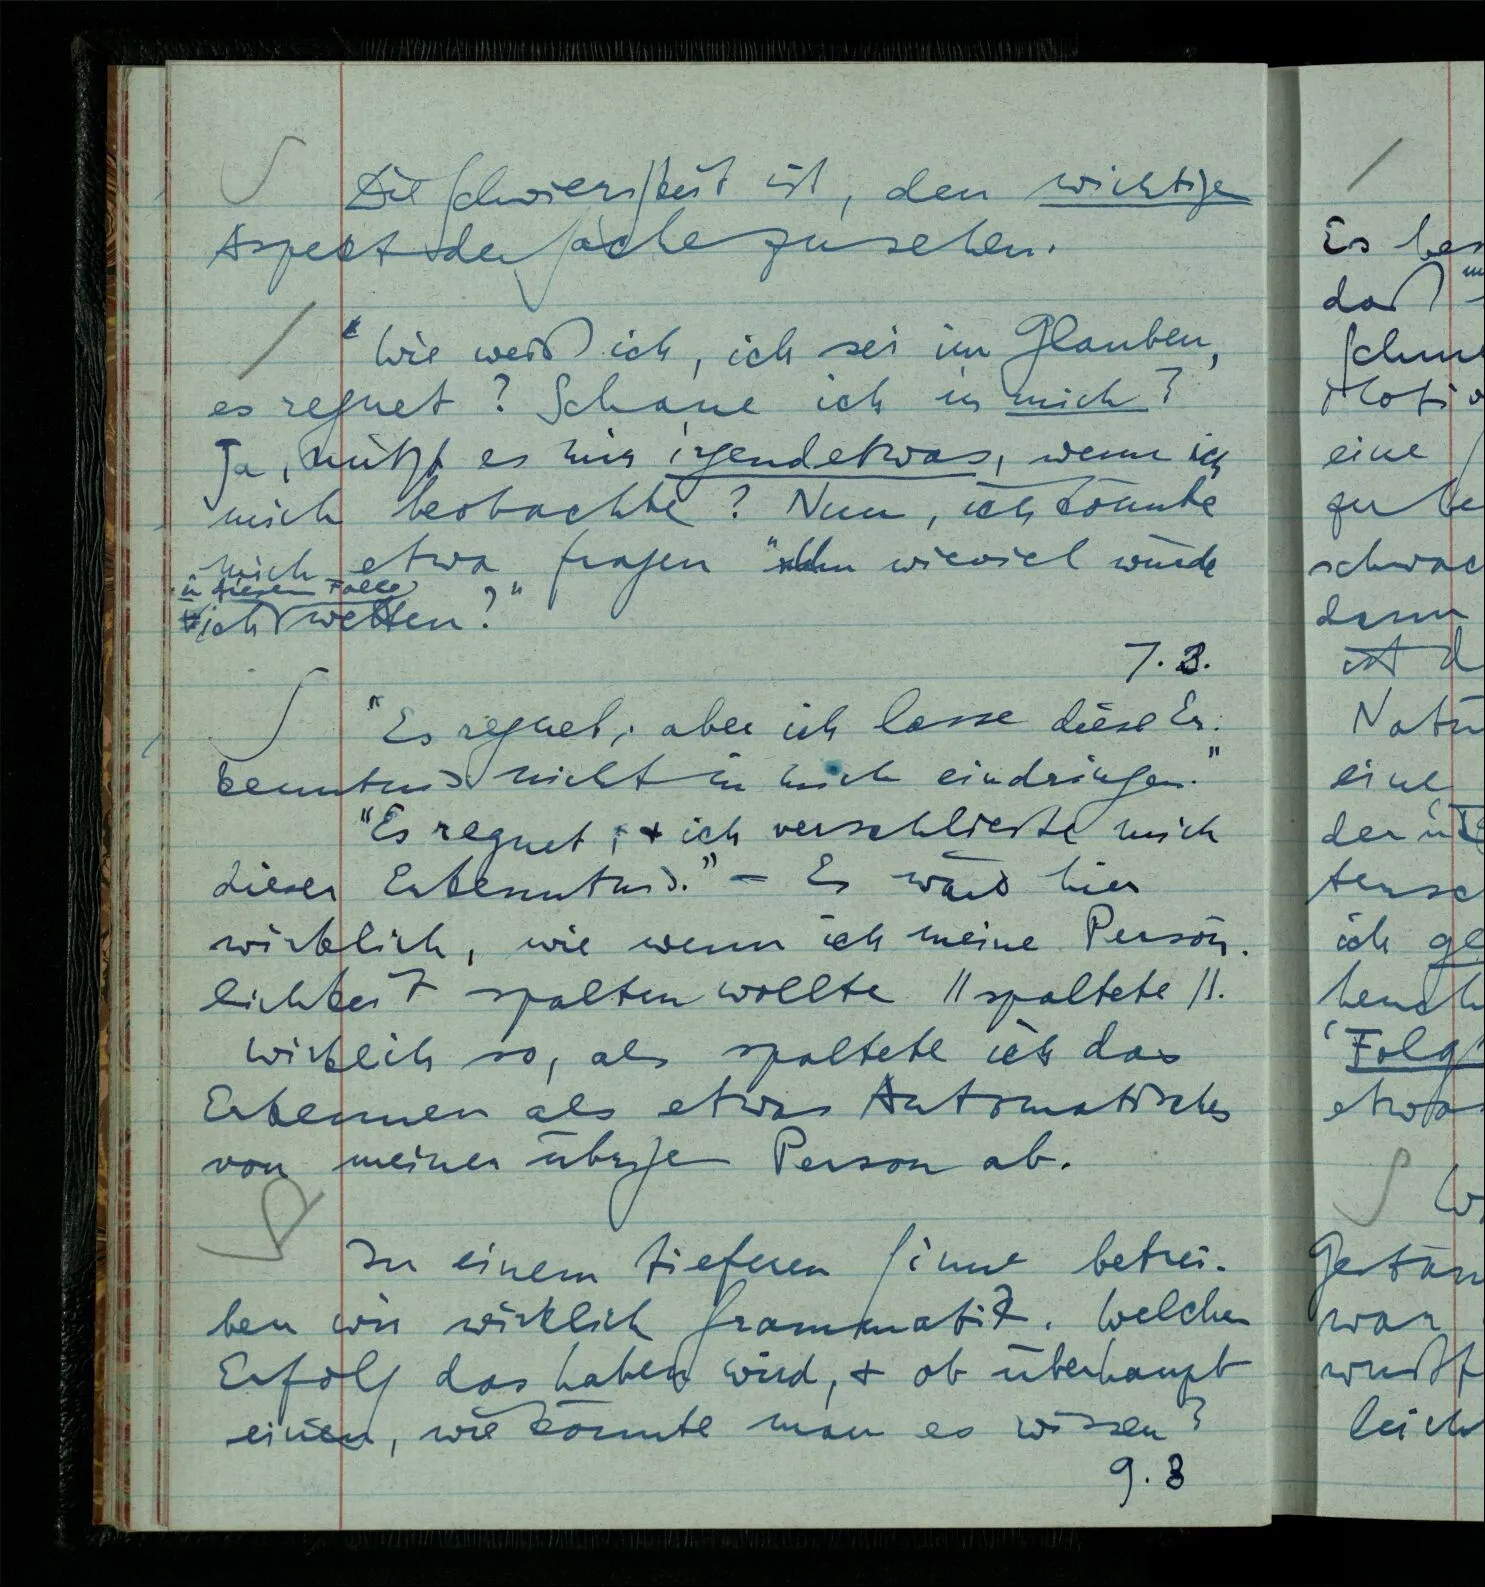 Die Schwierigkeit ist, den wichtigen
Aspekt der Sache zu sehen.
"Wie weiß ich, ich sei im Glauben,
es regnet? Schaue ich in mich?
Ja, nützt es mir irgendetwas, wenn ich
mich beobachte? Nun, ich könnte
mich etwa fragen "Um wieviel würde
in diesem Falle
ich wetten?"
7.3.
"Es regnet; aber ich lasse diese Er-
kenntnis nicht in mich eindringen."
"Es regnet; & ich verschließe mich
dieser Erkenntnis." – Es wäre hier
wirklich, wie wenn ich meine Persön-
lichkeit spalten wollte // spaltete //.
Wirklich so, als spaltete ich das
Erkennen als etwas Automatisches
von meiner übrigen Person ab.
In einem tieferen Sinne betrei-
ben wir wirklich Grammatik. Welchen
Erfolg das haben wird, & ob überhaupt
einen, wie könnte man es wissen?
9.3
Es
daß
eine
ich
Folg
etwas
war